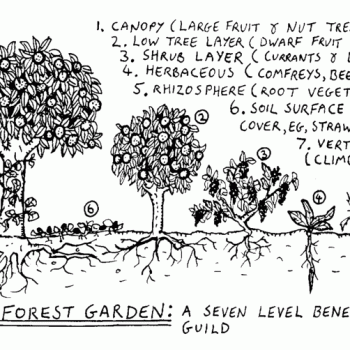 1. CANOPY (LARGE FRUIT & NUT TREE
2. LOW TREE LAYER (DWARF FRUIT
3. SHRUB LAYER (CURRANTS &
4. HERBACEOUS (COMFREYS, BEE
5. RHIZOSPHERE (ROOT VEGET
6. SOIL SURFACE
COVER, EG, STRAW
7. VERT
(CLIMB
2
3
6
4
FOREST GARDEN: A SEVEN LEVEL BENE
GUILD